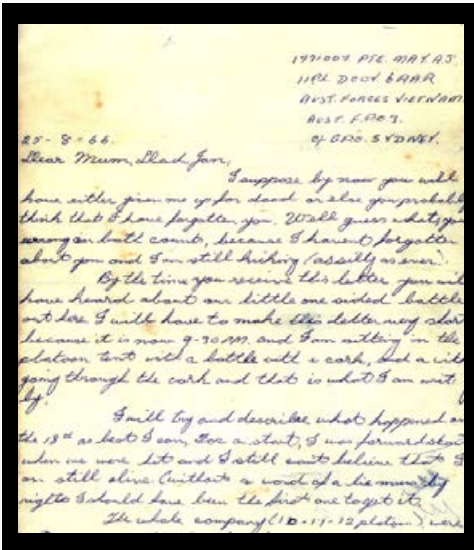 PTE. MAY A.J.
11 PL D COY 6 RAR
AUST. FORCES VIETNAM
AUST. F.P.O. 3.
C/- G.P.O. SYDNEY.
25-8-66.
Dear Mum, Dad, Jan,
I suppose by now you will
have either given me up for dead or else you probably
think that I have forgotten you. Well guess what, you
wrong on both counts, because I havent forgotten
about you and I am still kicking (as silly as ever).
By the time you receive this letter you will
have heard about our little one sided battle
out here I will have to make this letter very short
because it is now 9-30 PM. and I am sitting in the
platoon tent with a bottle with a cork, and a
going through the cork and that is what I am
by.
I will try and describe what happened on
the 18th as best I can, For a start, I was forward
when we were hit and I still cant believe that I
am still alive (without a word of a lie mum) by
rights I should have been the first one to get it.
The whole company (10-11-12 platoon) were